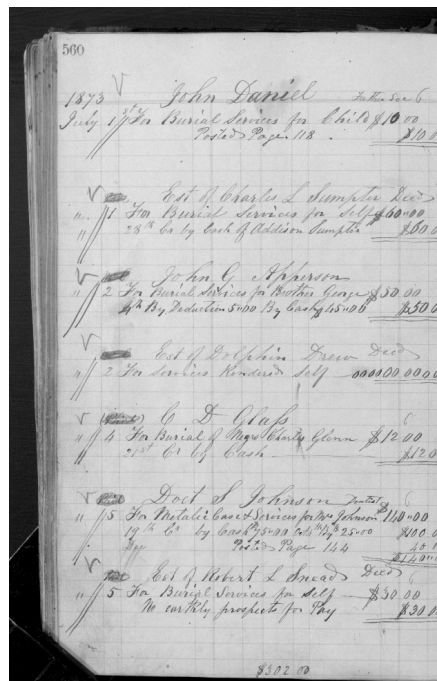 560
1873 John Daniel
July 1st For Burial Services for Child $10 00
Posted Page 118 $10 0
Est of Charles L Sumpter Decd
" 1 For Burial Services for Self $60"00
" 28th Cr by Cash of Addison Sumpter $60 0
John G Apperson
" 2 For Burial Services for Brother George $50 00
4th By Deduction 5"00 By Cash $45"00 $50 0
Est of Dolphin Drew Decd
" 2 For Services Rendered Self 00000000 0
(Paid) C D Glass 6
" 4 For Burial of Negro Charles Glenn $12 00
21st Cr by Cash $12 0
Doct S Johnson
" 5 For Metalic Case & Services for Mrs Johnson $140"00
19th Cr by Cash 75"00 25"00 $100 0
Posted Page 144 40
$140
Est of Robert L Snead Decd 6
" 5 For Burial Services for Self $30 00
No earthly prospects for Pay $30 0
$302 00